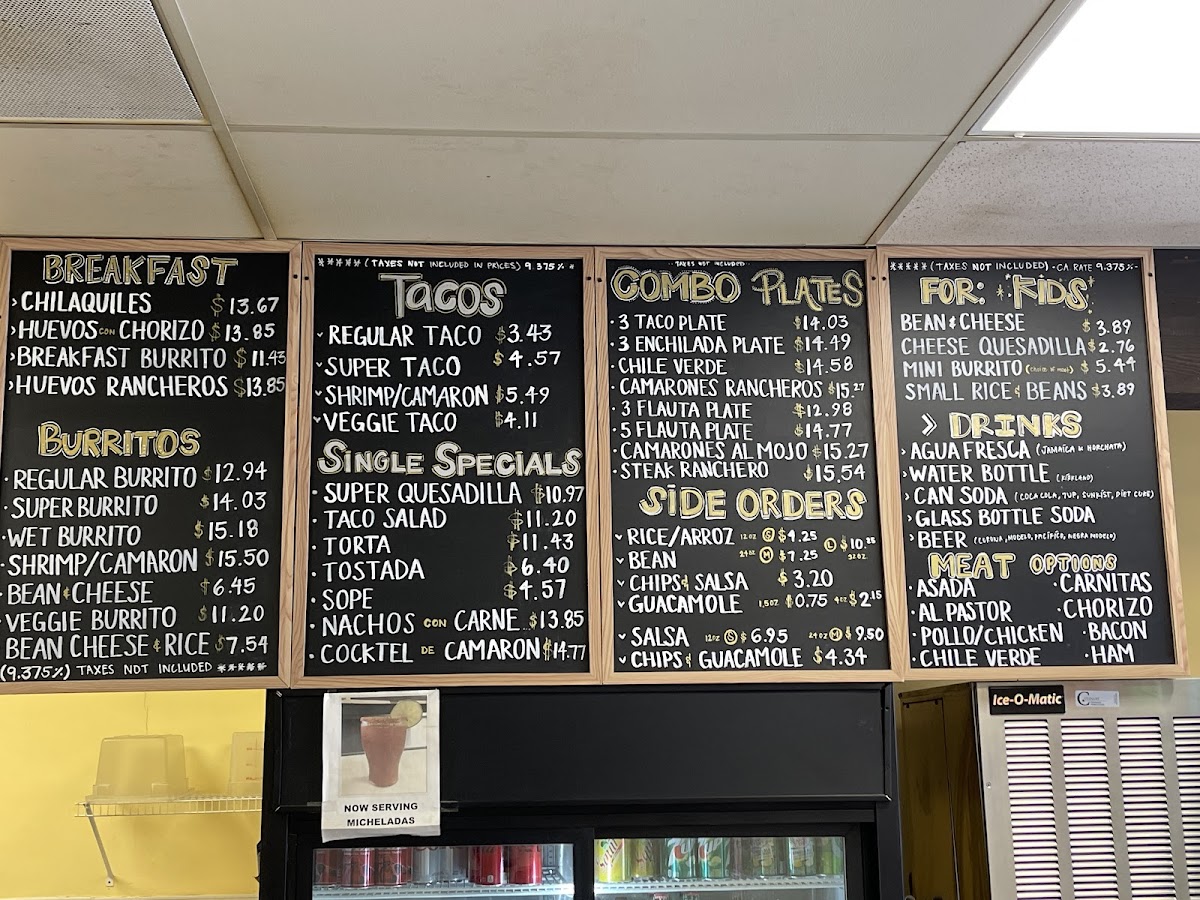 BREAKFAST
› CHILAQUILES $13.67
› HUEVOS CON CHORIZO $13.85
› BREAKFAST BURRITO $11.43
› HUEVOS RANCHEROS $13.85
BURRITOS
· REGULAR BURRITO $12.94
· SUPER BURRITO $14.03
· WET BURRITO $15.18
· SHRIMP/CAMARON $15.50
· BEAN & CHEESE $6.45
· VEGGIE BURRITO $11.20
BEAN CHEESE & RICE $7.54
(9.375%) TAXES NOT INCLUDED *****
***** (TAXES NOT INCLUDED IN PRICES) 9.375%
TACOS
REGULAR TACO $3.43
SUPER TACO $4.57
SHRIMP/CAMARON $5.49
VEGGIE TACO $4.11
SINGLE SPECIALS
· SUPER QUESADILLA $10.97
· TACO SALAD $11.20
· TORTA $11.43
· TOSTADA $6.40
· SOPE $4.57
· NACHOS CON CARNE $13.85
· COCKTEL DE CAMARON $14.77
TAXES NOT INCLUDED
COMBO PLATES
· 3 TACO PLATE $14.03
· 3 ENCHILADA PLATE $14.49
· CHILE VERDE $14.58
· CAMARONES RANCHEROS $15.27
· 3 FLAUTA PLATE $12.98
· 5 FLAUTA PLATE $14.77
· CAMARONES AL MOJO $15.27
· STEAK RANCHERO $15.54
SIDE ORDERS
RICE/ARROZ 12 OZ S $4.25 L $10.25
BEAN 24 OZ M $7.25 32 OZ
CHIPS & SALSA $3.20
GUACAMOLE 1.5 OZ $0.75 4 OZ $2.15
SALSA 12 OZ S $6.95 24 OZ M $9.50
CHIPS & GUACAMOLE $4.34
***** (TAXES NOT INCLUDED) - CA. RATE 9.375%-
FOR: KIDS
BEAN & CHEESE $3.89
CHEESE QUESADILLA $2.76
MINI BURRITO (CHOICE OF MEAT) $5.44
SMALL RICE & BEANS $3.89
» DRINKS
› AGUA FRESCA (JAMAICA N HORCHATA)
› WATER BOTTLE (KIRKLAND)
› CAN SODA (COCA COLA, 7UP, SUNKIST, DIET COKE)
› GLASS BOTTLE SODA
› BEER (CORONA, MODELO, PACIFICO, NEGRA MODELO)
MEAT OPTIONS
· ASADA · CARNITAS
· AL PASTOR · CHORIZO
· POLLO/CHICKEN · BACON
· CHILE VERDE · HAM
NOW SERVING
MICHELADAS
Ice-O-Matic